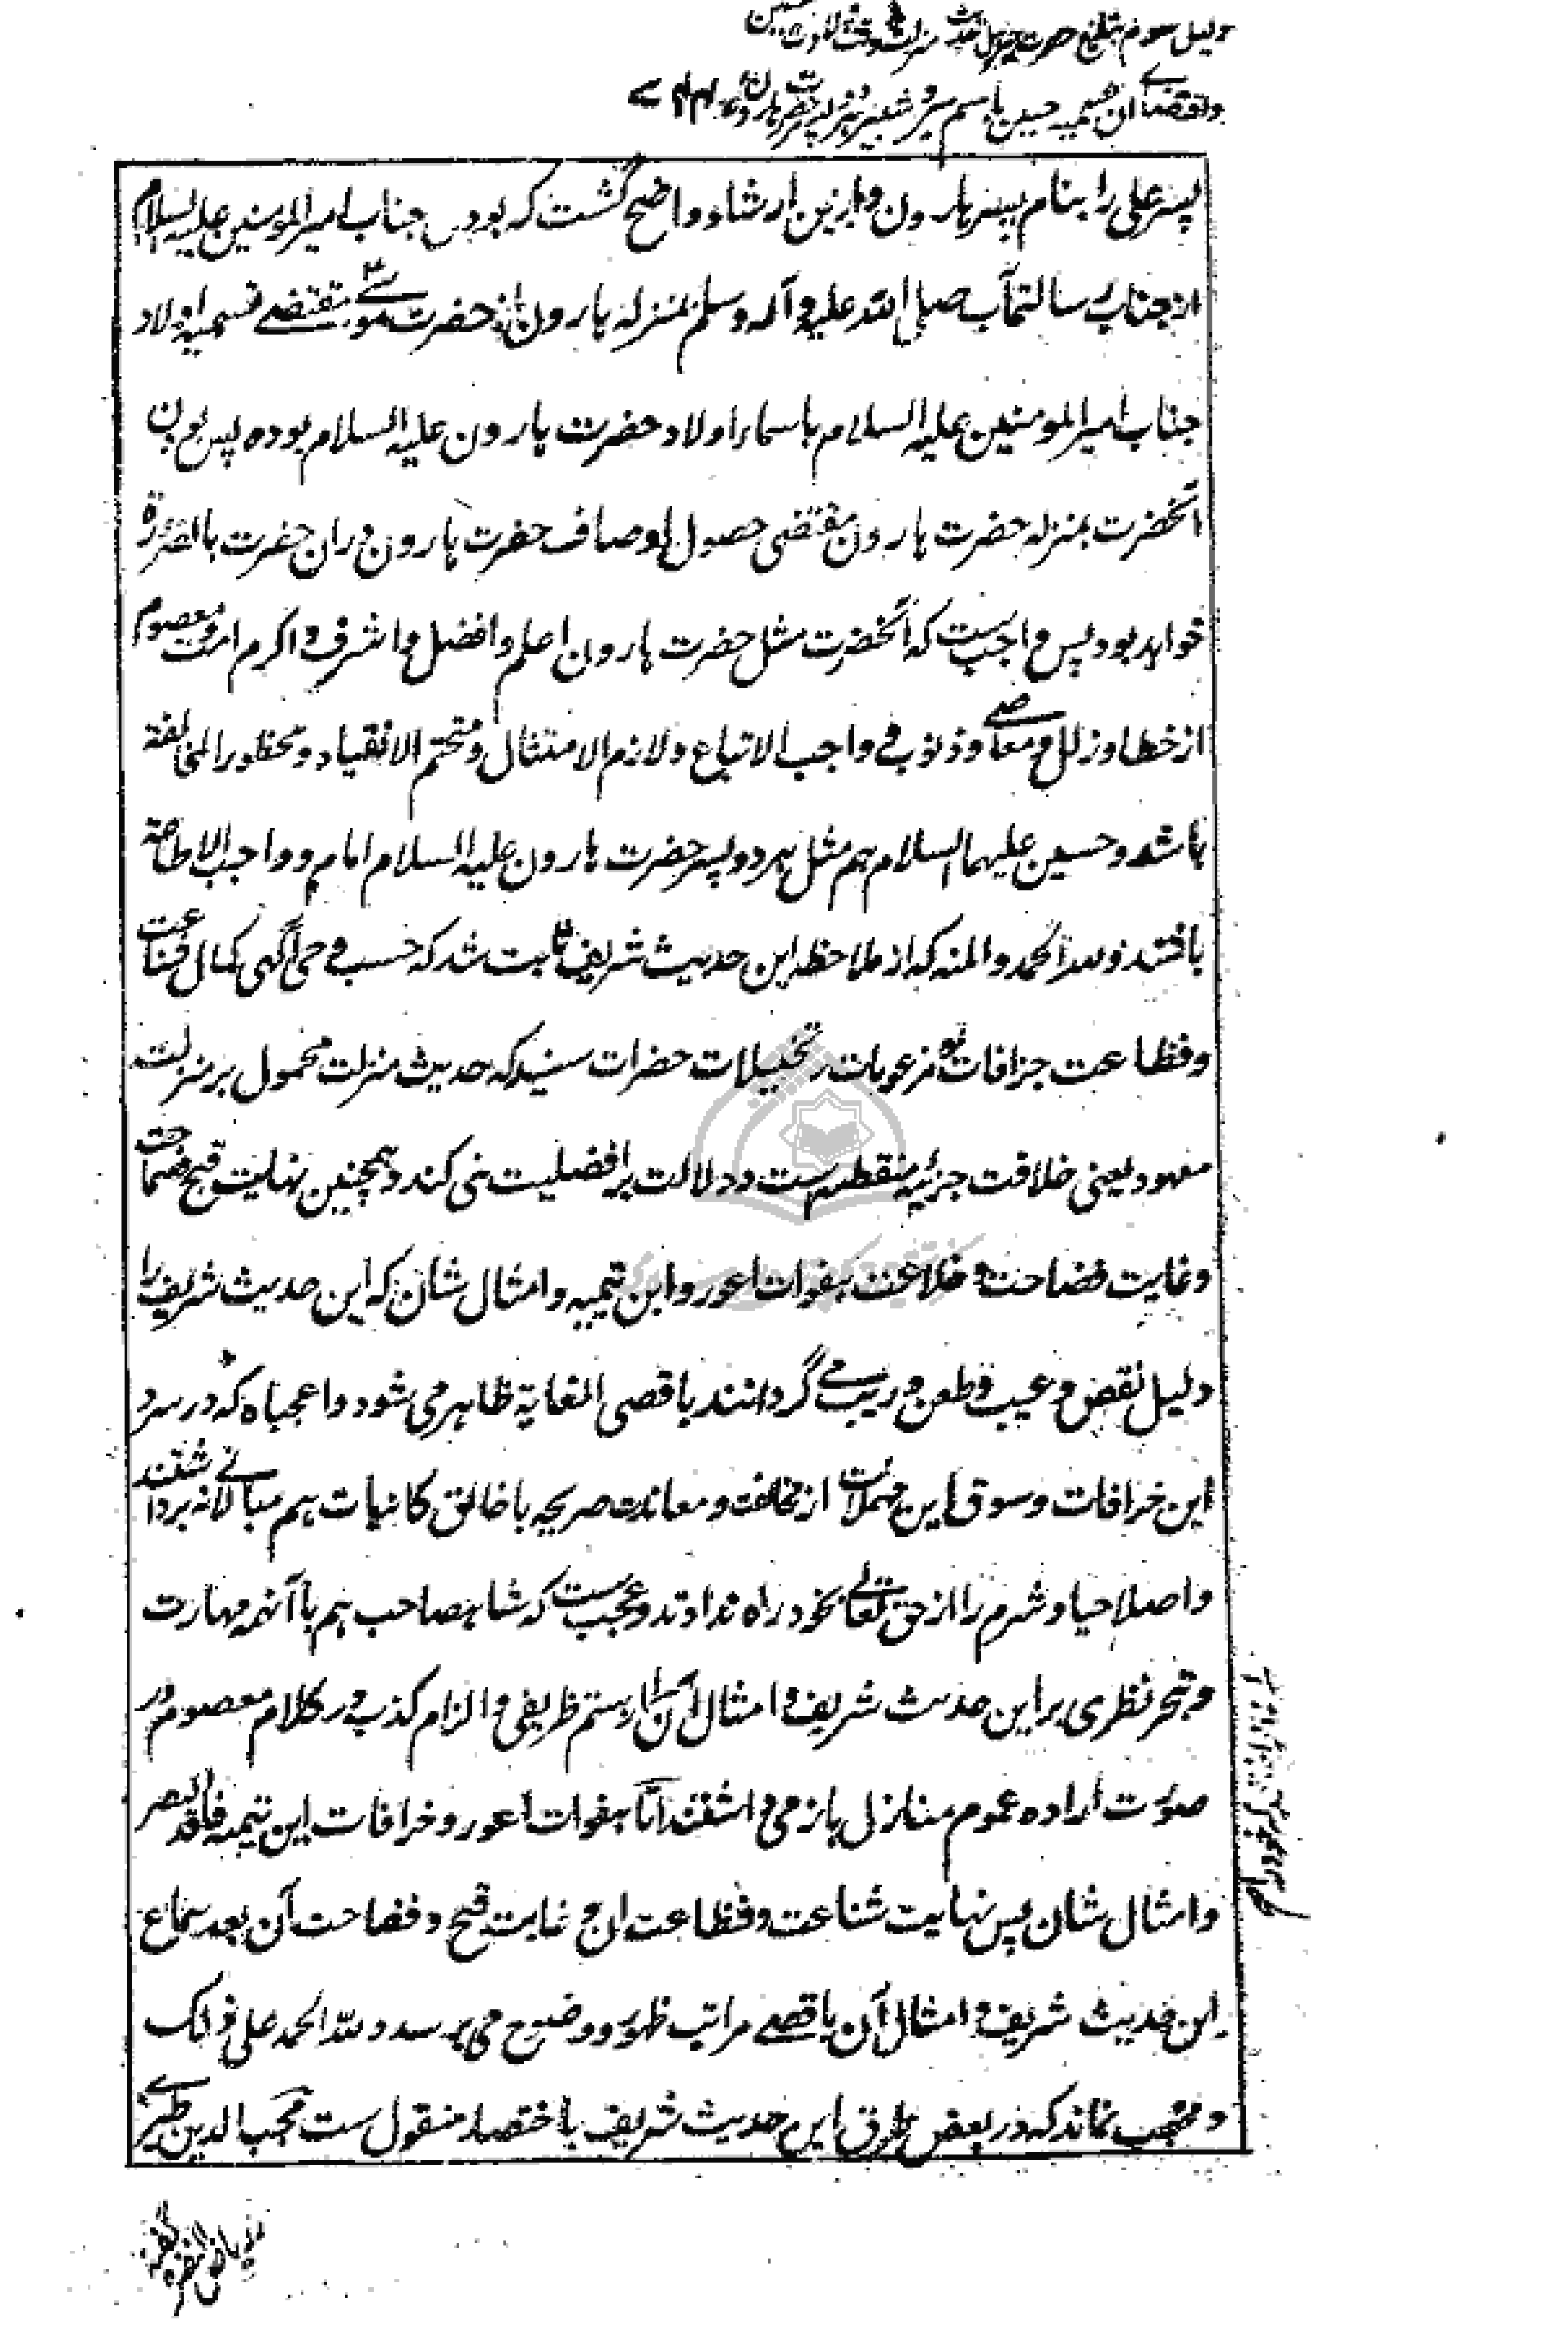 دلیل سوم تبلیغ حضرت جبرئیل حدیث منزلت وقت ولادت حسنین
و اقتضای آن تسمیه حسنین باسم شبر و شبیر دو پسر حضرت هارون ۴۴۲
پسر علی را بنام پسر هارون و ازین ارشاد واضح گشت که بودن جناب امیرالمومنین علیه السلام
از جناب رسالتمآب صلی الله علیه و آله و سلم بمنزله هارون از حضرت موسی مقتضی تسمیه اولاد
جناب امیرالمومنین علیه السلام باسماء اولاد حضرت هارون علیه السلام بوده پس بودن
آنحضرت بمنزله حضرت هارون مقتضی حصول اوصاف حضرت هارون در آن حضرت بالضرورة
خواهد بود پس واجبست که آنحضرت مثل حضرت هارون اعلم و افضل و اشرف و اکرم امت و معصوم
از خطا و زلل و معاصی و ذنوب و واجب الاتباع و لازم الامتثال و متحتم الانقیاد و محظور المخالفة
باشد و حسنین علیهما السلام هم مثل هر دو پسر حضرت هارون علیه السلام امام و واجب الاطاعة
باشند و لله الحمد و المنه که از ملاحظه این حدیث شریف ثابت شد که حسب وحی الهی کمال شناعت
و فظاعت جزافات و مزعومات و تخییلات حضرات سنیه که حدیث منزلت محمول بر منزلت
معهود یعنی خلافت جزئیه منقطعه است و دلالت بر افضلیت نمی کند و همچنین نهایت قبح و سماجت
و غایت فضاحت و خلاعت هفوات اعور و ابن تیمیه و امثال شان که این حدیث شریف را
دلیل نقص و عیب و طعن و ریب می گردانند باقصی الغایة ظاهر می شود واعجباه که در سرد
این خرافات و سوق این مهملات از مخالفت و معاندت صریحه با خالق کائنات هم مبالاتی نه برداشتند
و اصلا حیا و شرم را از حق تعالی بخود راه ندادند و عجبست که شاهصاحب هم با آنهمه مهارت
و تبحر نظری بر این حدیث شریف و امثال آن از ستم ظریفی و الزام کذب در کلام معصوم در
صورت اراده عموم منازل باز می داشتند اما هفوات اعور و خرافات ابن تیمیه فاقد البصر
و امثال شان پس نهایت شناعت و فظاعت آن و غایت قبح و فضاحت آن بعد سماع
این حدیث شریف و امثال آن باقصی مراتب ظهور و وضوح می رسد و لله الحمد علی ذلک
و محتجب نماند که در بعض طرق این حدیث شریف باختصار منقول ست محب الدین طبری